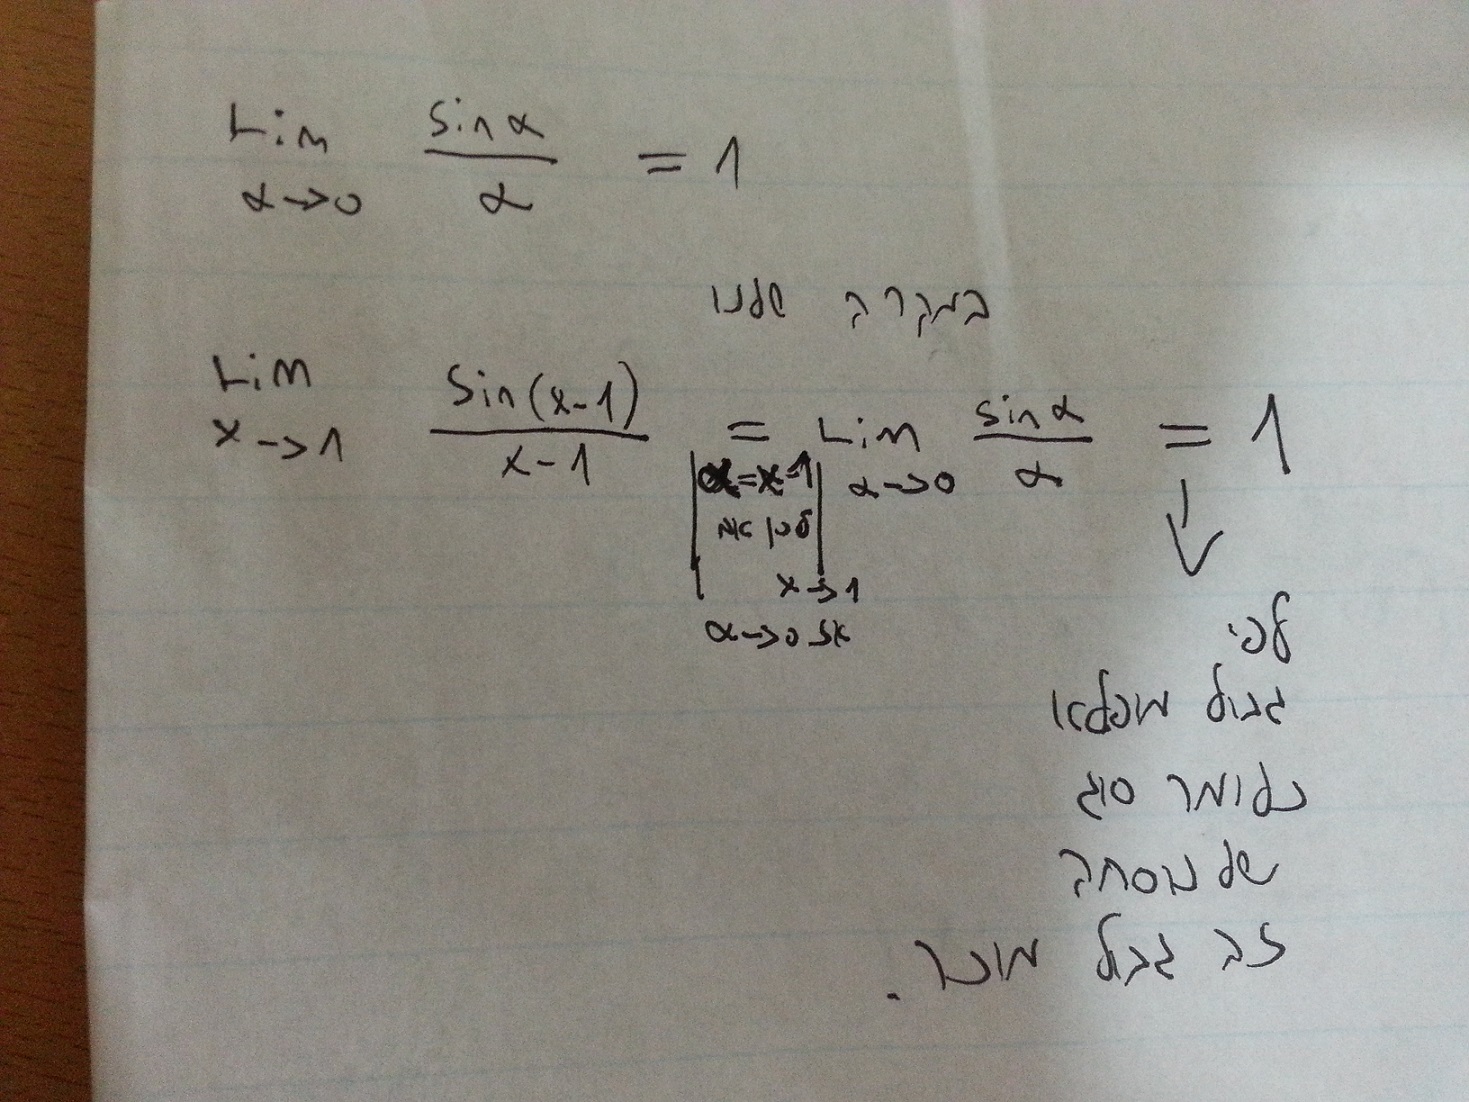 Lim sin α / α = 1
α→0
במקרה שלנו
Lim sin(x-1) / x-1 = Lim sin α / α = 1
x→1 α→0
α=x-1
לכן אם
x→1
אז α→0
לפי
גבול מופלא
כלומר סוג
של נוסחה
זה גבול מוכר.